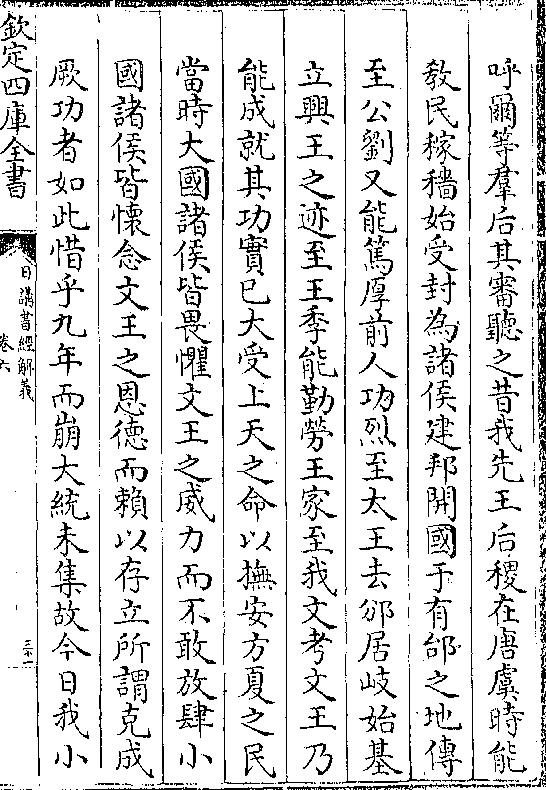 呼爾等羣后其審聽之昔我先王后稷在唐虞時能
教民稼穡始受封為諸侯建邦開國于有邰之地傳
至公劉又能篤厚前人功烈至太王去邠居岐始基
立興王之迹至王季能勤勞王家至我文考文王乃
能成就其功實已大受上天之命以撫安方夏之民
當時大國諸侯皆畏懼文王之威力而不敢放肆小
國諸侯皆懷念文王之恩德而賴以存立所謂克成
厥功者如此惜乎九年而崩大統未集故今日我小
欽定四庫全書
日講書經解義
卷六
三十一